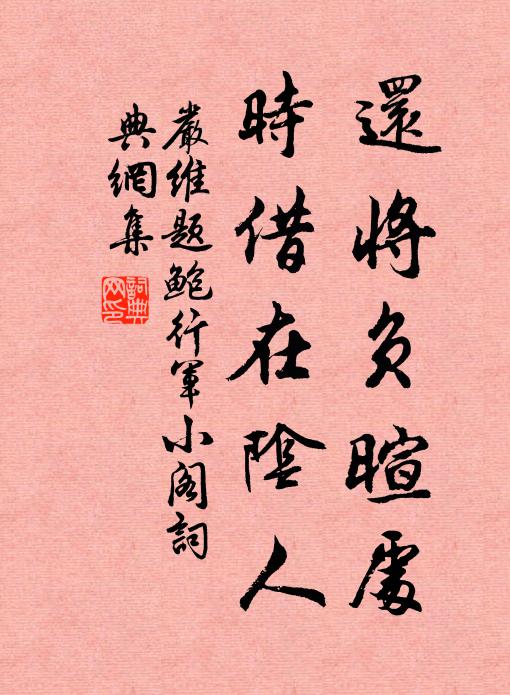 還將負暄處
時借在陰人
嚴維題鮑行軍小閣詞
典網集
詞典
网印